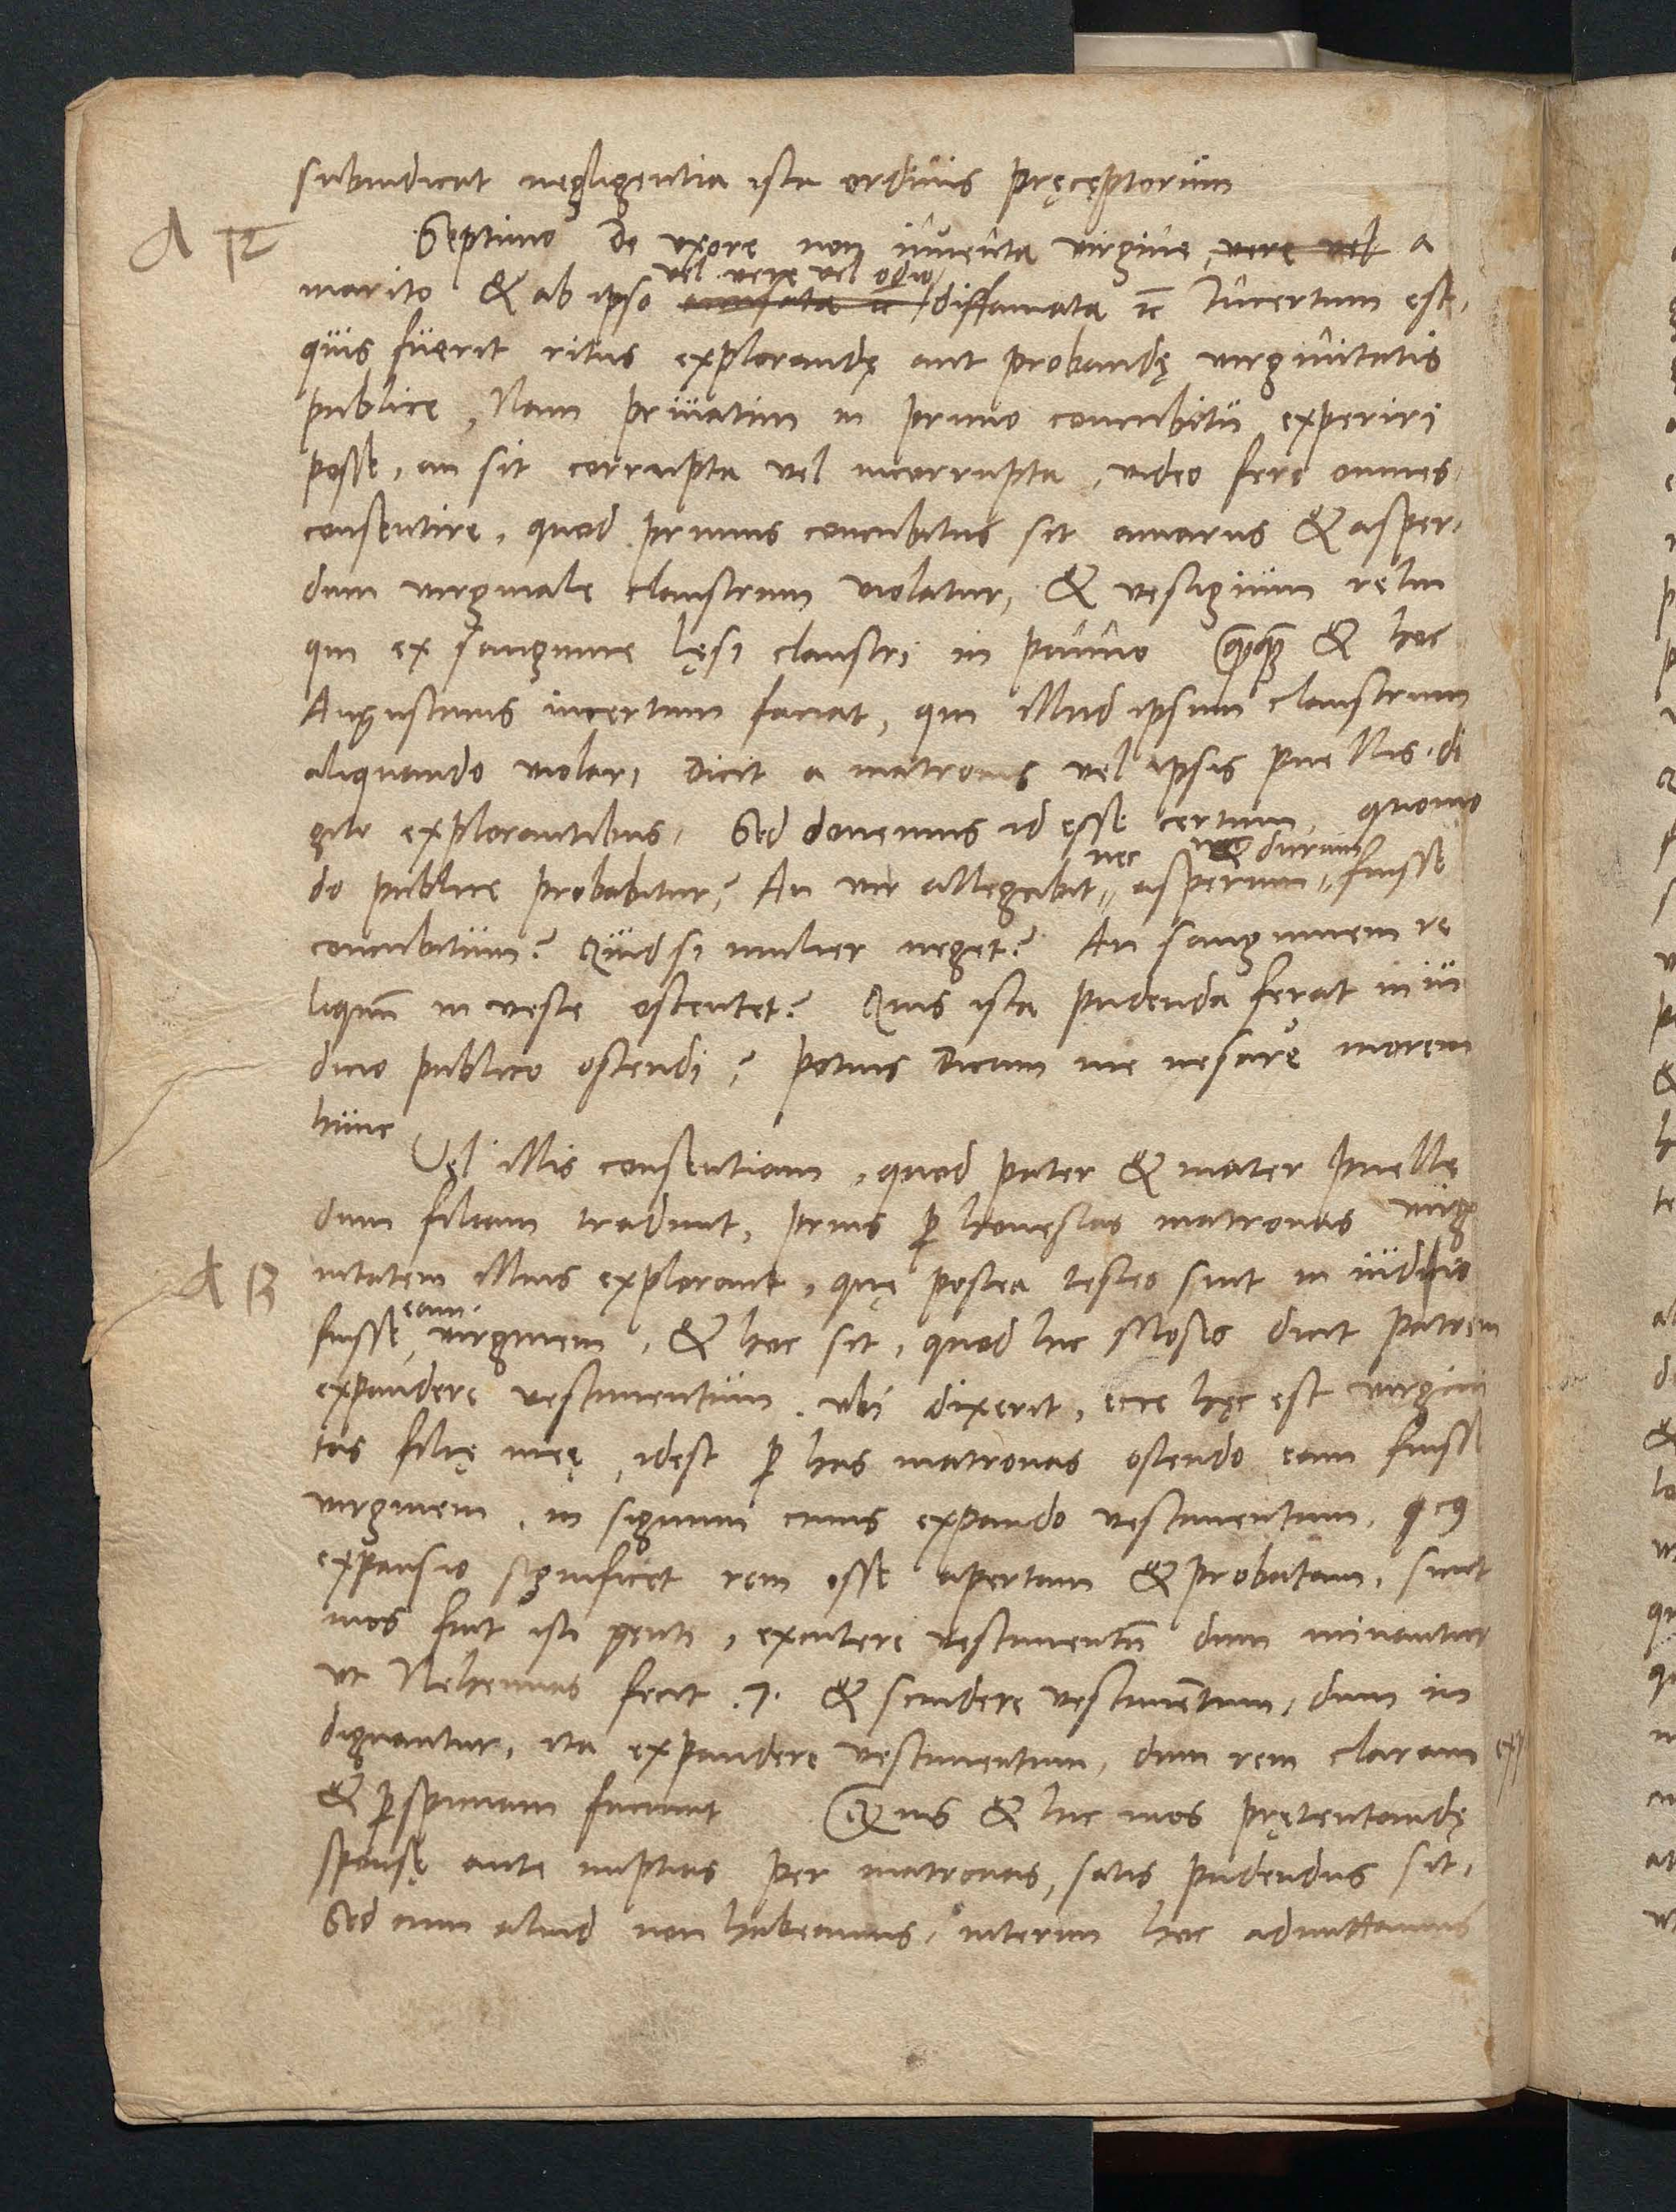 subindicat negligentia ista ordinis pręceptorum
A 12 Septimo De vxore non inuenta virgine, vere vel a
vel vere vel odio
marito & ab ipso accusata ac diffamata ꝛc Incertum est,
quis fuerit ritus explorandę aut probandę virginitatis
publice, Nam priuatim in primo concubitu experiri
posse, an sit corrupta vel incorrupta, video fere omnes
consentire, quod primus concubitus sit amarus & asper,
dum virginale claustrum violatur, & vestigium relin
qui ex sanguine lęsi claustri in panno Quāquā & hoc
Augustinus incertum faciat, qui illud ipsum claustrum
aliquando violari dicit a matronis vel ipsis puellis di
gito explorantibus. Sed donemus id esse certum, quomo
nec & durum
do publice probabitur? An vir allegabit asperum fuisse
concubitum? Quid si mulier neget? An sanguinem re
liquū in veste ostentet? Quis ista pudenda ferat in iu
dicio publico ostendi? Potius dicam me nescire morem
hunc
Vel illis consentiam, quod pater & mater puellę
dum filiam tradunt, prius ꝑ honestas matronas virgi
A 13 nitatem illius explorant, quę postea testes sint in iudicio
eam
fuisse virginem, & hoc sit, quod hic Moses dicit patrem
expandere vestimentum, vbi dixerit, ecce hęc est virgini
tas filię meę, idest ꝑ has matronas ostendo eam fuisse
virginem, in signum cuius expando vestimentum,
expansio significet rem esse apertam & probatam, sicut
mos fuit isti genti, excutere vestimentū dum minantur
vt Nehemias fecit .7. & scindere vestimentum, dum in
dignantur, ita expandere vestimentum, dum rem claram
& ꝑspicuam faciunt Quis & hic mos prętentandę
sponsę ante nuptias per matronas, satis pudendus sit,
Sed cum aliud non habeamus, interim hoc admittamus